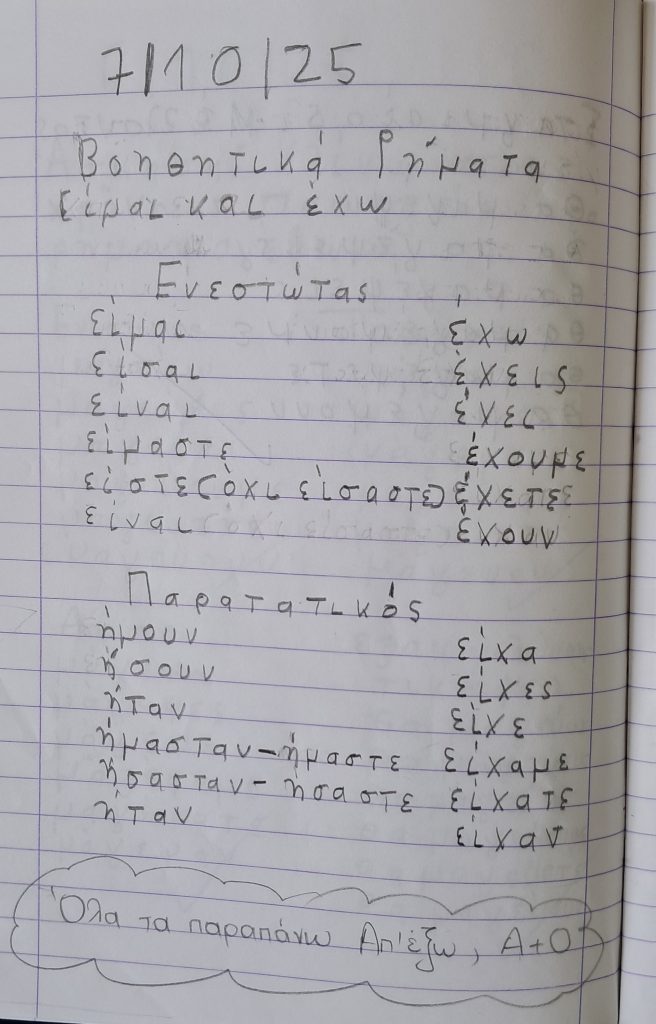 7/10/25
Βοηθητικά Ρήματα
είμαι και έχω
Ενεστώτας
είμαι έχω
είσαι έχεις
είναι έχει
είμαστε έχουμε
είστε (όχι είσαστε) έχετε
είναι έχουν
Παρατατικός
ήμουν είχα
ήσουν είχες
ήταν είχε
ήμασταν-ήμαστε είχαμε
ήσασταν-ήσαστε είχατε
ήταν είχαν
Όλα τα παραπάνω Απ'έξω, Α+Ο